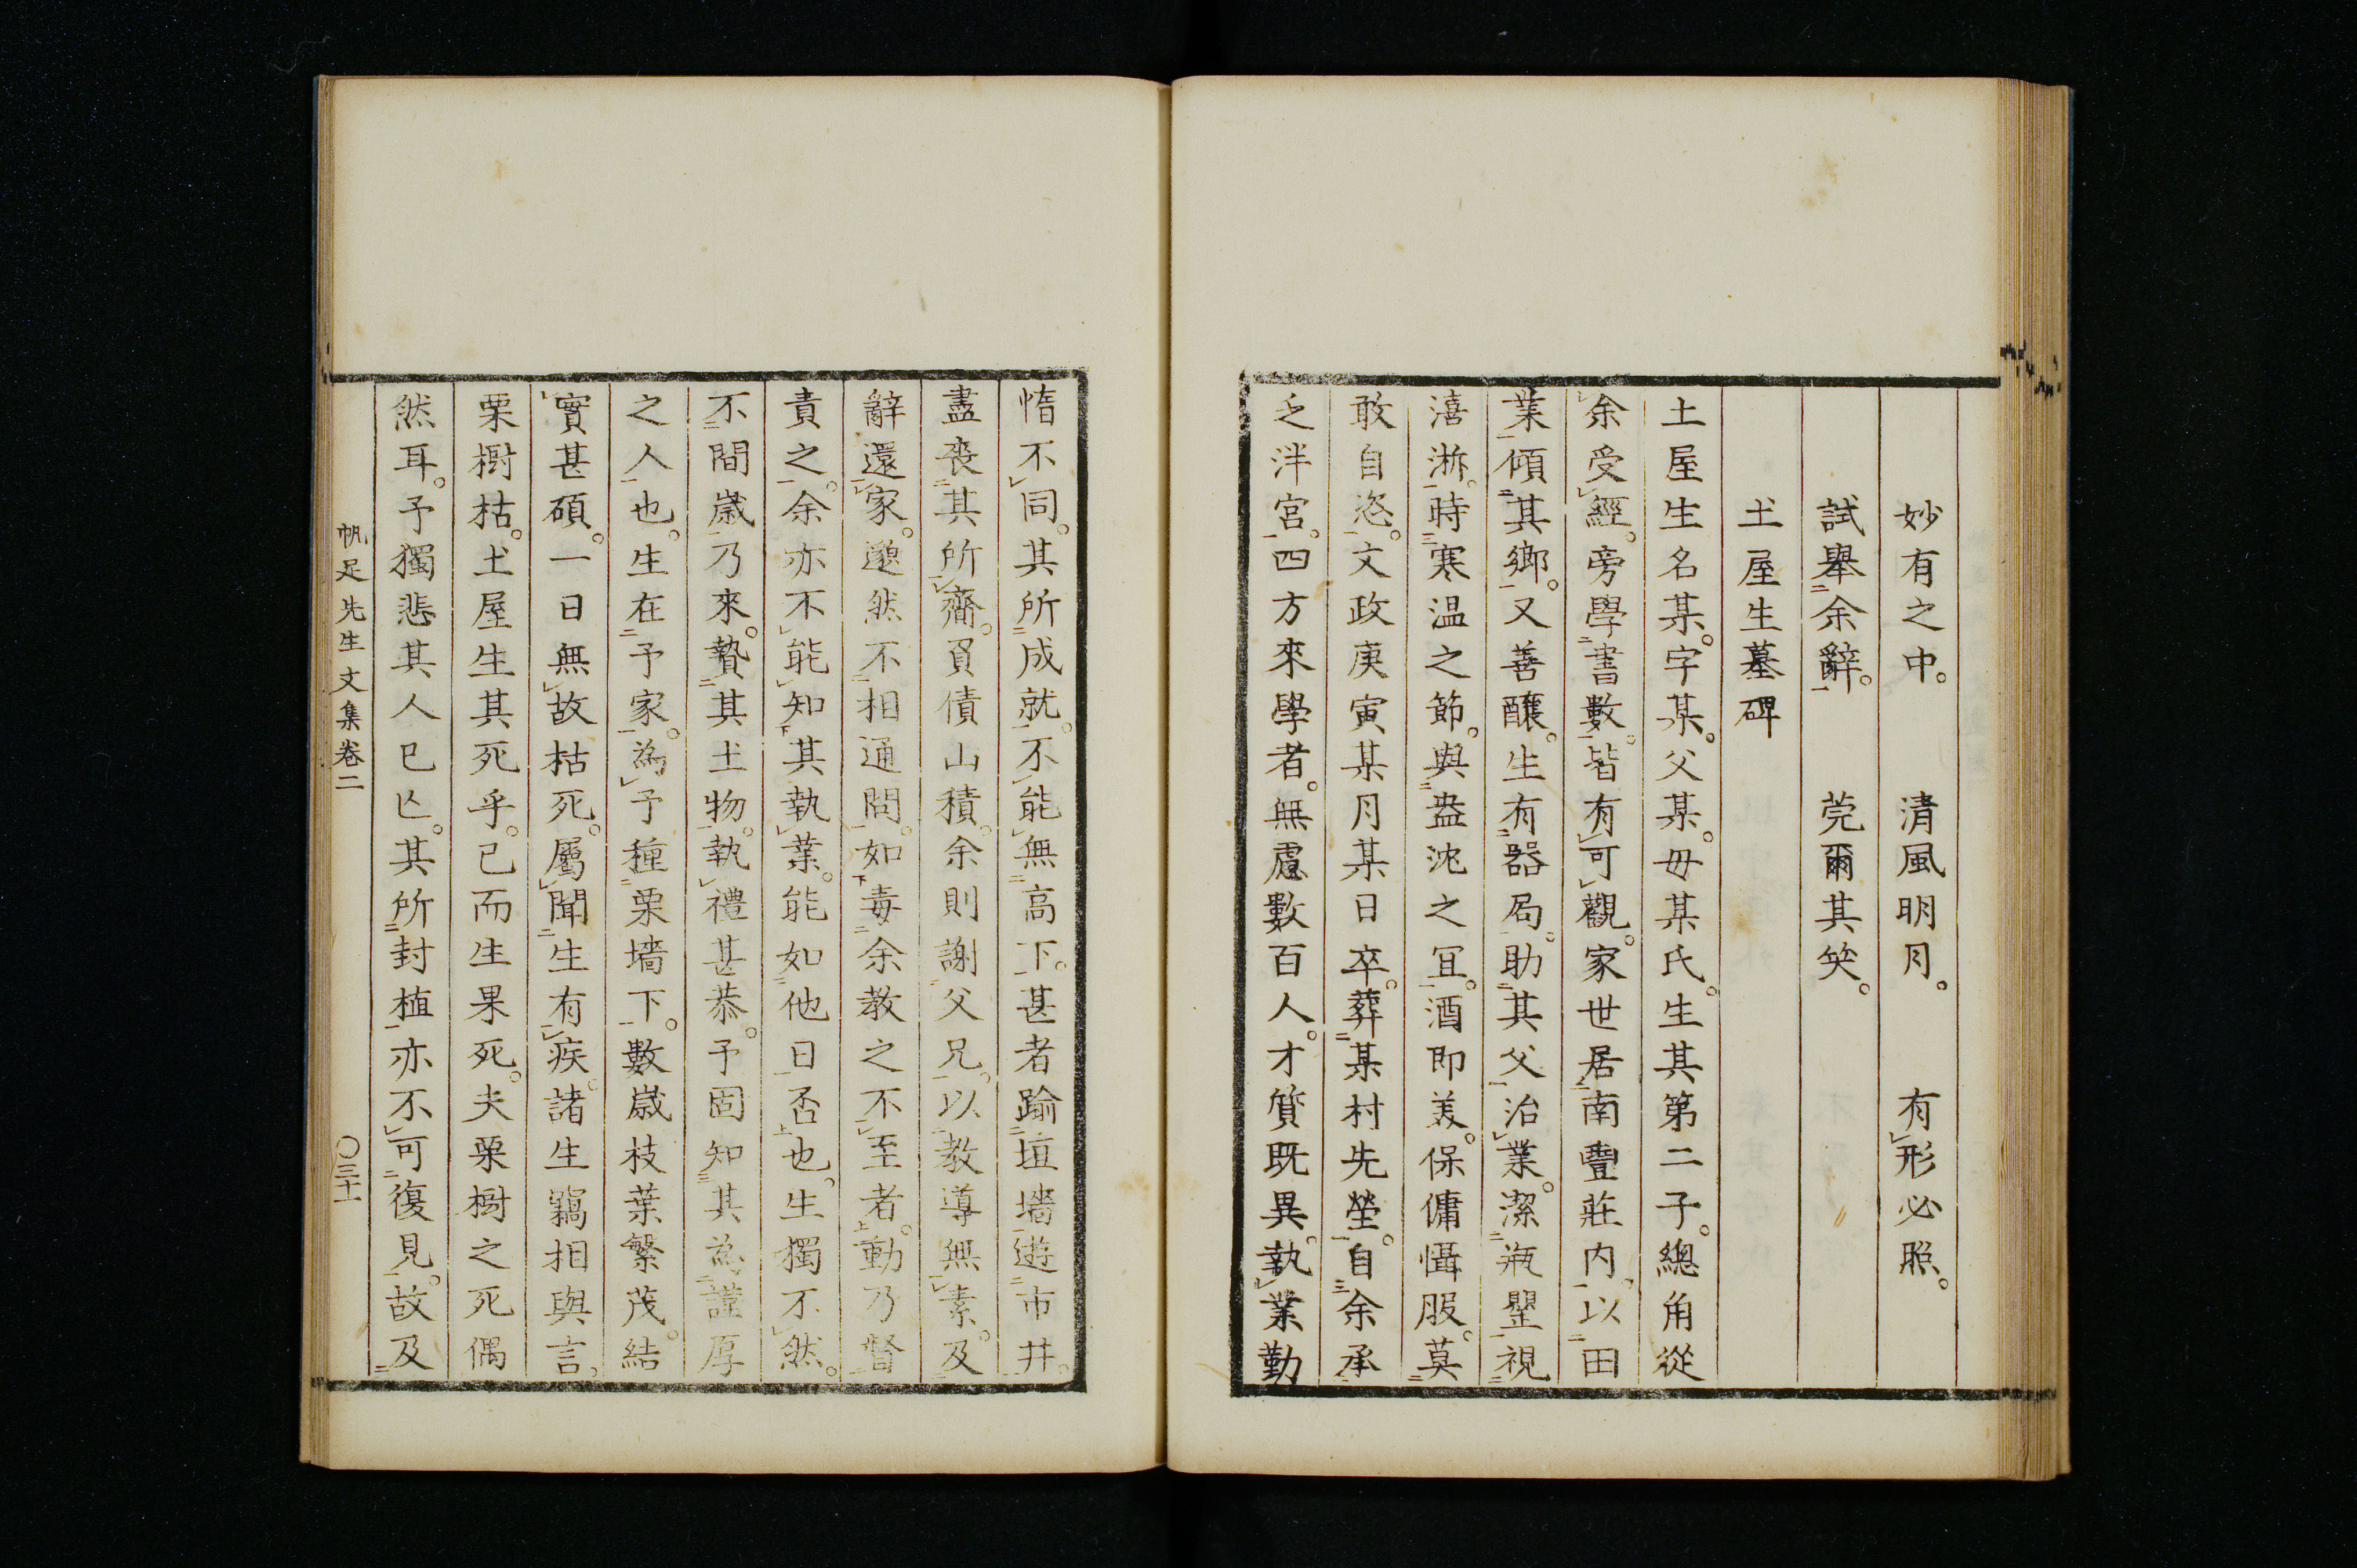 妙有之中。　清風明月。　有形必照。
試舉余辭。　莞爾其笑。
土屋生墓碑
土屋生名某。字某。父某。毋某氏。生其第二子。總角從
余受經。旁學書數。皆有可觀。家世居南豐莊内。以田
業傾其鄉。又善釀。生有器局。助其父治業。潔瓶壂視
漬淅。時寒温之節。與盎沈之冝。酒即美。保傭懾服。莫
敢自恣。文政庚寅某月某日卒。葬某村先塋。自余承
乏泮宮。四方來學者。無慮數百人。才質既異。執業勤
惰不同。其所成就。不能無高下。甚者踰垣墻遊市井。
盡喪其所齎。負債山積。余則謝父兄。以教導無素。及
辭還家。邈然不相通問。如毒余教之不至者。動乃督
責之。余亦不能知其執業。能如他日否也。生獨不然。
不間歲乃來。贄其土物。執禮甚恭。予固知其為謹厚
之人也。生在予家。為予種栗墻下。數歲枝葉繁茂。結
實甚碩。一日無故枯死。屬聞生有疾。諸生竊相與言。
栗樹枯。土屋生其死乎。已而生果死。夫栗樹之死偶
然耳。予獨悲其人已亡。其所封植亦不可復見。故及
帆足先生文集卷二　〇三十一